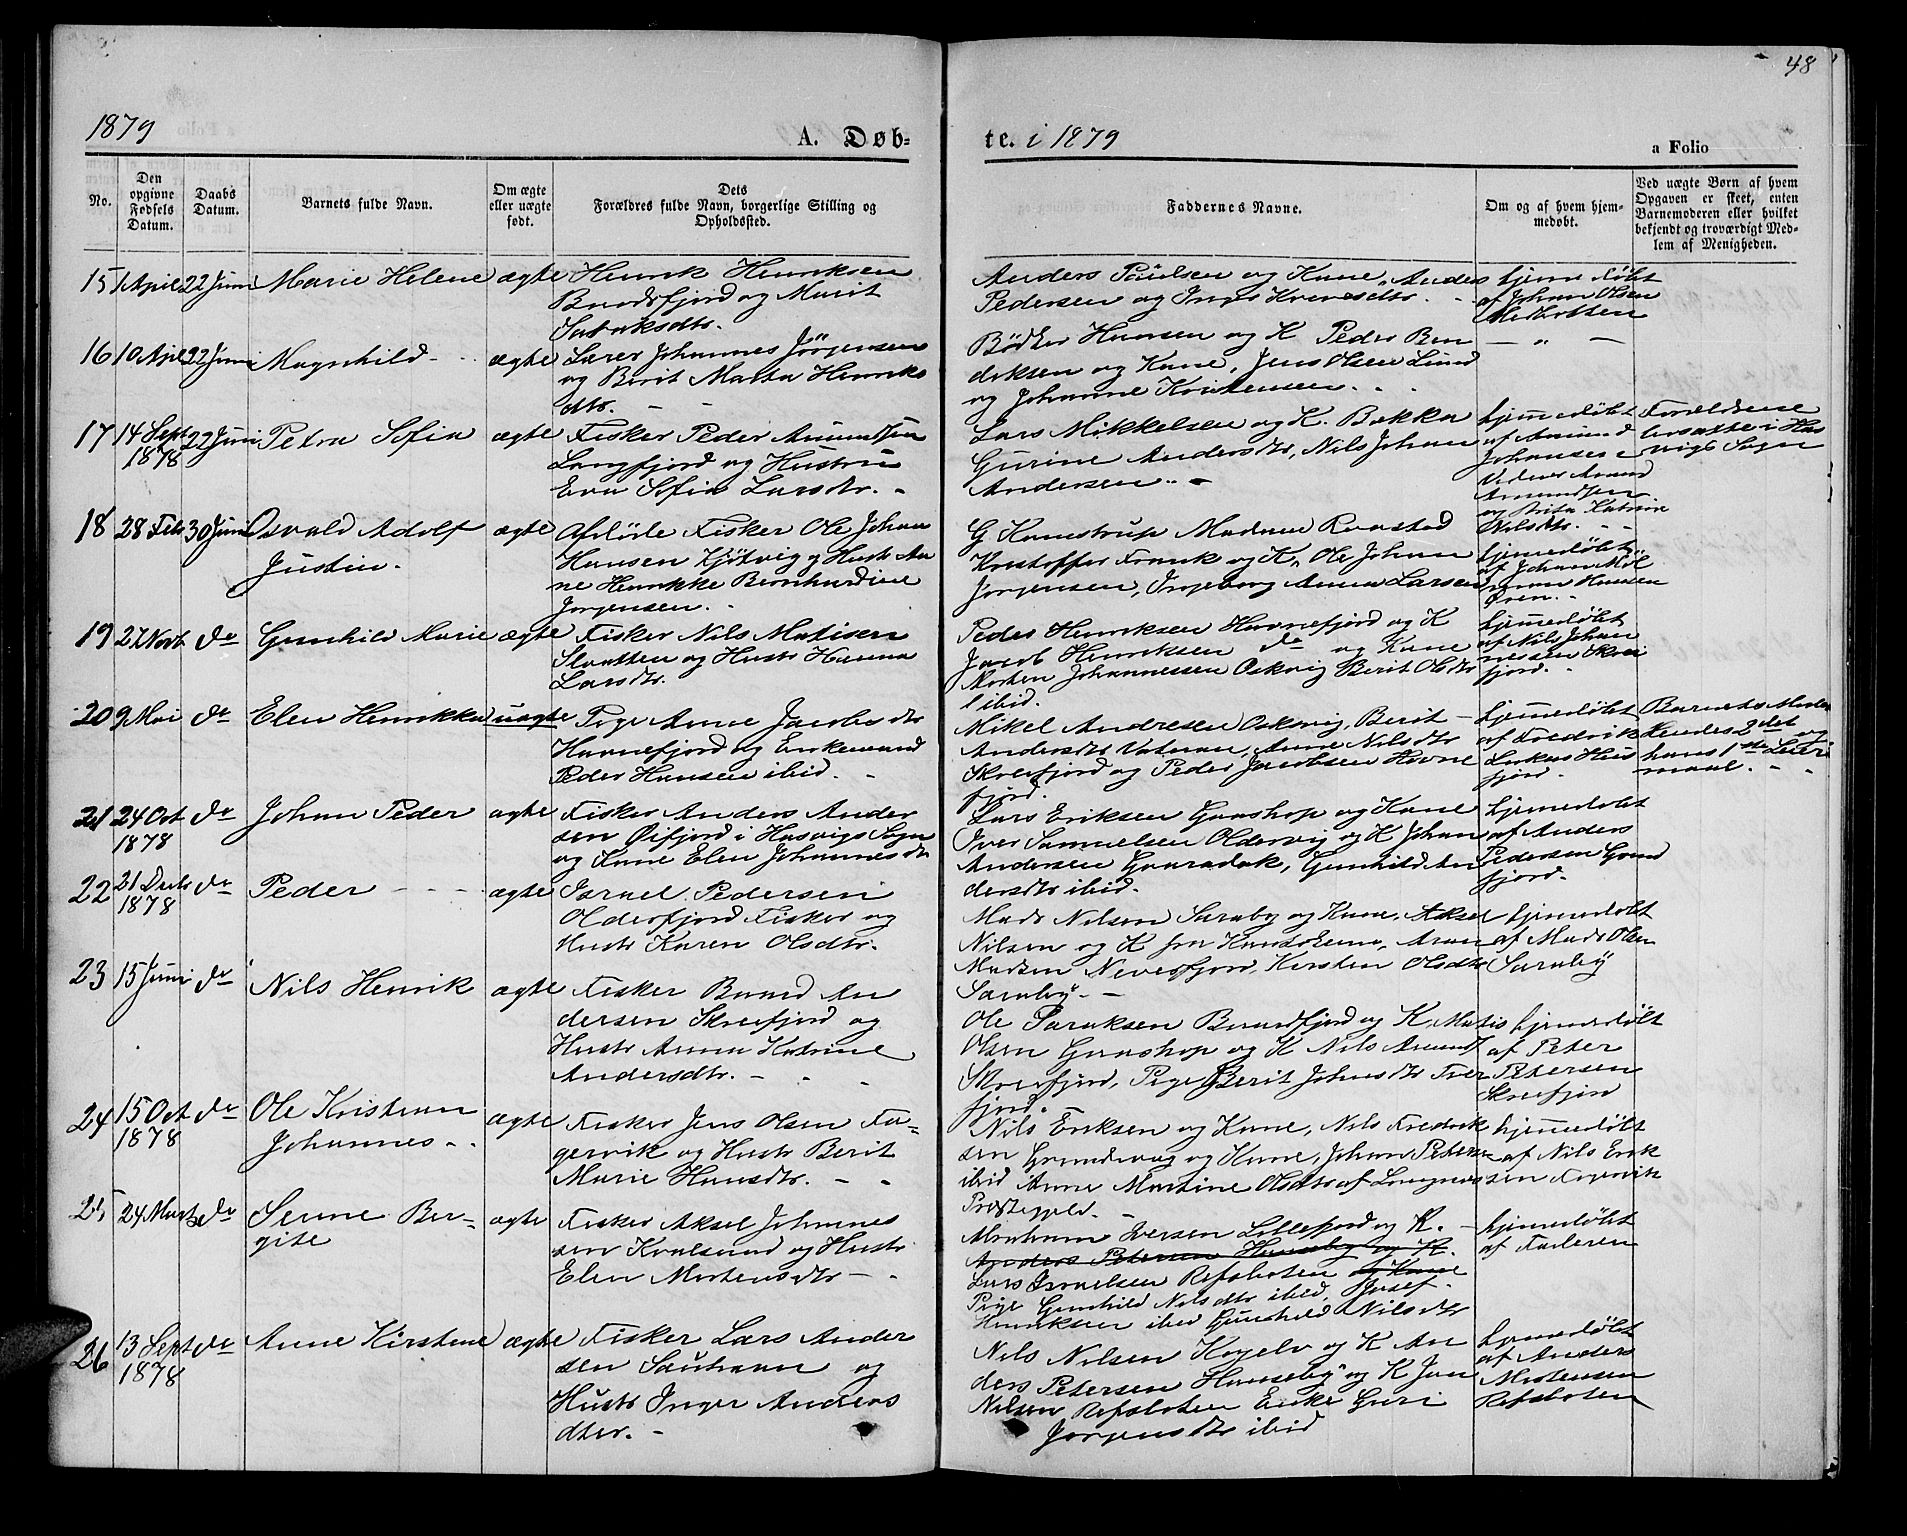 48
1879
A. Døb-
te. i 1879
a Folio
No.
Den opgivne Fødsels Datum.
Daabs Datum.
Barnets fulde Navn.
Om ægte eller uægte født.
Dets Forældres fulde Navn, borgerlige Stilling og Opholdssted.
Faddernes Navne.
Om og af hvem hjem-
medøbt.
Ved uægte Børn af hvem
Opgaven er skeet, enten
Barnemoderen eller hvilket
bekjendt og troværdigt Med-
lem af Menigheden.
15 1 April 22 Juni Marie Helene ægte Henrik Henriksen
Baardsfjord og Marit
Anders Paulsen og Kone, Anders
Pedersen og Inger
hjemedøbt
af Johan Olsen
16 10 Apil 22 Juni Magnhild ægte Lærer Johannes Jörgensen
og Berit Marta Henriks
dtr.
Bödker Hansen og K Peder Ben
diksen og Kone, Jens Olsen Lund
og Johanne Kristensen.
— " —
17 14 Sept 1878 22 Juni Petra Sofia ægte Fisker Peder Amundsen
Langfjord og Hustru
Eva Sofia Larsdtr.
Lars Mikkelsen og K. Bekka
Gurine Andersdtr, Nils Johan
Andersen
hjemedøbt
af Amund
Johansen
Amundsen
og Brita Katrine
Nilsdtr.
Forældrene
bosatte i Has
vigs Sogn
18 28 Feb 30 Juni Osvald Adolf
Justin.
ægte Afdöde Fisker Ole Johan
Hansen Kjötvig og Hustr An
ne Henrikke Bernhardine
Jorgensen.
G Kanestrup Madame Raastad
Kristoffer Frank og K, Ole Johan
Jorgensen, Ingeborg Anna Larsen
hjemedøbt
af Johan
Hansen
19 27 Novb do Gunhild Marie ægte Fisker Nils Matisen
Slaatten og Hustr Hanna
Larsdtr.
Peder Henriksen Havnefjord og K
Jacob Henriksen do og Kone
Morten Johannessen Oskvig Berit Olsdtr
ibid.
hjemmedøbt
af Nils Johan
nessen Skrei
fjord.
20 9 Mai do Elen Henrikka uægte Pige Anne Jacobsdtr
Havnefjord og Enkemand
Peder Hansen ibid.
Mikel Andresen Oskvig, Berit
Andersdtr, Anne Nilsdtr
Skreifjord og Peder Jacobsen Havne
fjord.
hjemedøbt
af Fredrik
Lukas Hus
fjord.
Barnets Moder
Hendes 2det og
hans 1ste Leier
maal.
21 24 Oct 1878 do Johan Peder ægte Fisker Anders Ander
sen Öifjord i Hasvigs Sogn
og Kone Elen Johannesdtr
Lars Eriksen Gaashop og Kone
Iver Samuelsen Oldervig og K Johan
Andersen, Gunhild An
dersdtr ibid.
hjemedøbt
af Anders
Pedersen
fjord.
22 21 Decbr 1878 do Peder ægte Israel Pedersen
Olderfjord Fisker og
Hustr Karen Olsdtr.
Mads Nilsen Saraby og Kone, Aksel
Nilsen og K fra, Aron
Madsen Neversfjord, Kirsten Olsdtr
Saraby.
hjemedøbt
af Mads Olsen
Saraby
23 15 Juni do Nils Henrik ægte Fisker Baard An
dersen Skreifjord og
Hustr Anna Katrine
Andersdtr.
Ole Isaksen Baardfjord og K, Matis
Olsen Gaashop og K Nils Amunds
Skreifjord, Pige Berit Johnsdtr
fjord.
hjemedøbt
af Peter
Petersen
Skreifjord
24 15 Oct 1878 do Ole Kristian
Johannes
ægte Fisker Jens Olsen Fa-
gervik og Hustr Berit
Marie Hansdtr.
Nils Eriksen og Kone, Nils Fredrik
sen og Kone, Johan Petersen
ibid Anne Martine Olsdtr af
Prestegjeld.
hjemmedøbt
af Nils Erik
sen Fagervik
25 24 Marts do Serine Ber-
gite
ægte Fisker Aksel Johannes
sen Kvalsund og Hustr
Elen Mortensdtr
Abraham Iversen Lillefjord og K.
Anders Petersen Hanseby og K.
Lars Israelsen Refsbotten og Kone
Pige Gunhild Nilsdtr ibid, Josef
Henriksen ibid Gunhild Nilsdtr
hjemedøbt
af Faderen
26 13 Sept 1878 do Anne Kirstene ægte Fisker Lars Ander
sen og
Hustr Inger Anders
dter.
Nils Nilsen og K An
ders Petersen Hanseby og K Jon
Nilsen Refsbotten Enke Guri
Jorgensdtr ibid
hjemedøbt
af Anders
Mortensen
Refsbotten